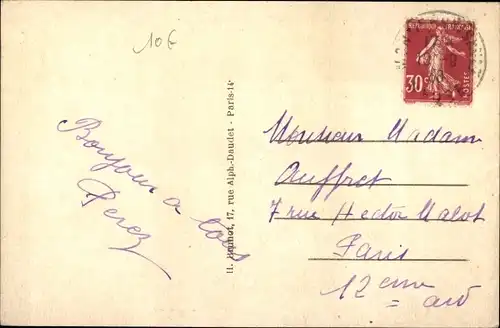 10€
RÉPUBLIQUE FRANÇAISE
30c
POSTES
Bonjour a tous
Perez
17, rue Alph.-Daudet - Paris-14e
Monsieur Madam
Auffret
7 rue Hector Malot
Paris
12 eme
ard